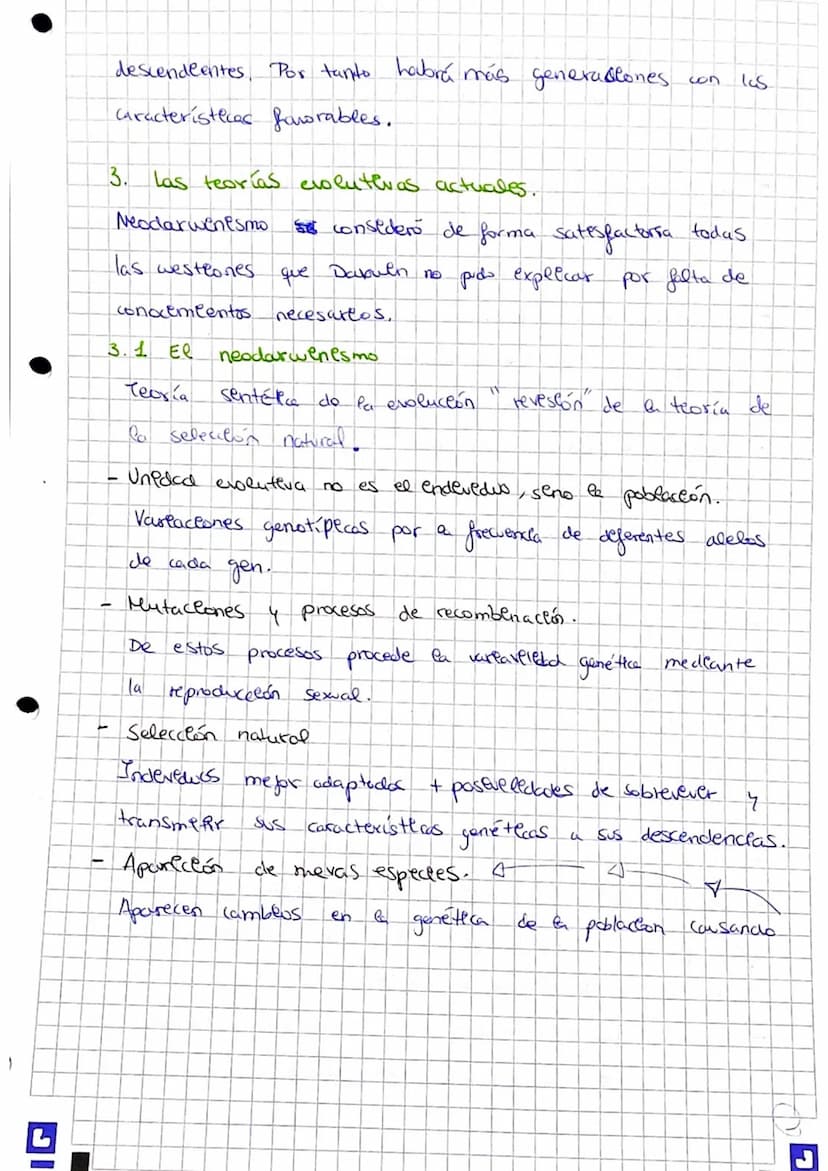 descendientes. Por tanto habrá más generaciones con las
características favorables.
3. Las teorías evolutivas actuales.
Neodarwinismo consideró de forma satisfactoria todas
las cuestiones que Darwin no pudo explicar por falta de
conocimientos necesarios.
3.1 El neodarwinismo
Teoría sintética de la evolución "revisión" de la teoría de
la selección natural.
- Unidad evolutiva no es el individuo, sino la población.
Variaciones genotípicas por la frecuencia de diferentes alelos
de cada gen.
- Mutaciones y procesos de recombinación.
De estos procesos procede la variavilidad genética mediante
la reproducción sexual.
- Selección natural
Indeveduos mejor adaptados + posevelidades de sobrevevir y
transmitir sus características genéticas a sus descendencias.
- Aparición de nuevas especies.
Aparecen cambios en la genética de la poblacion causando